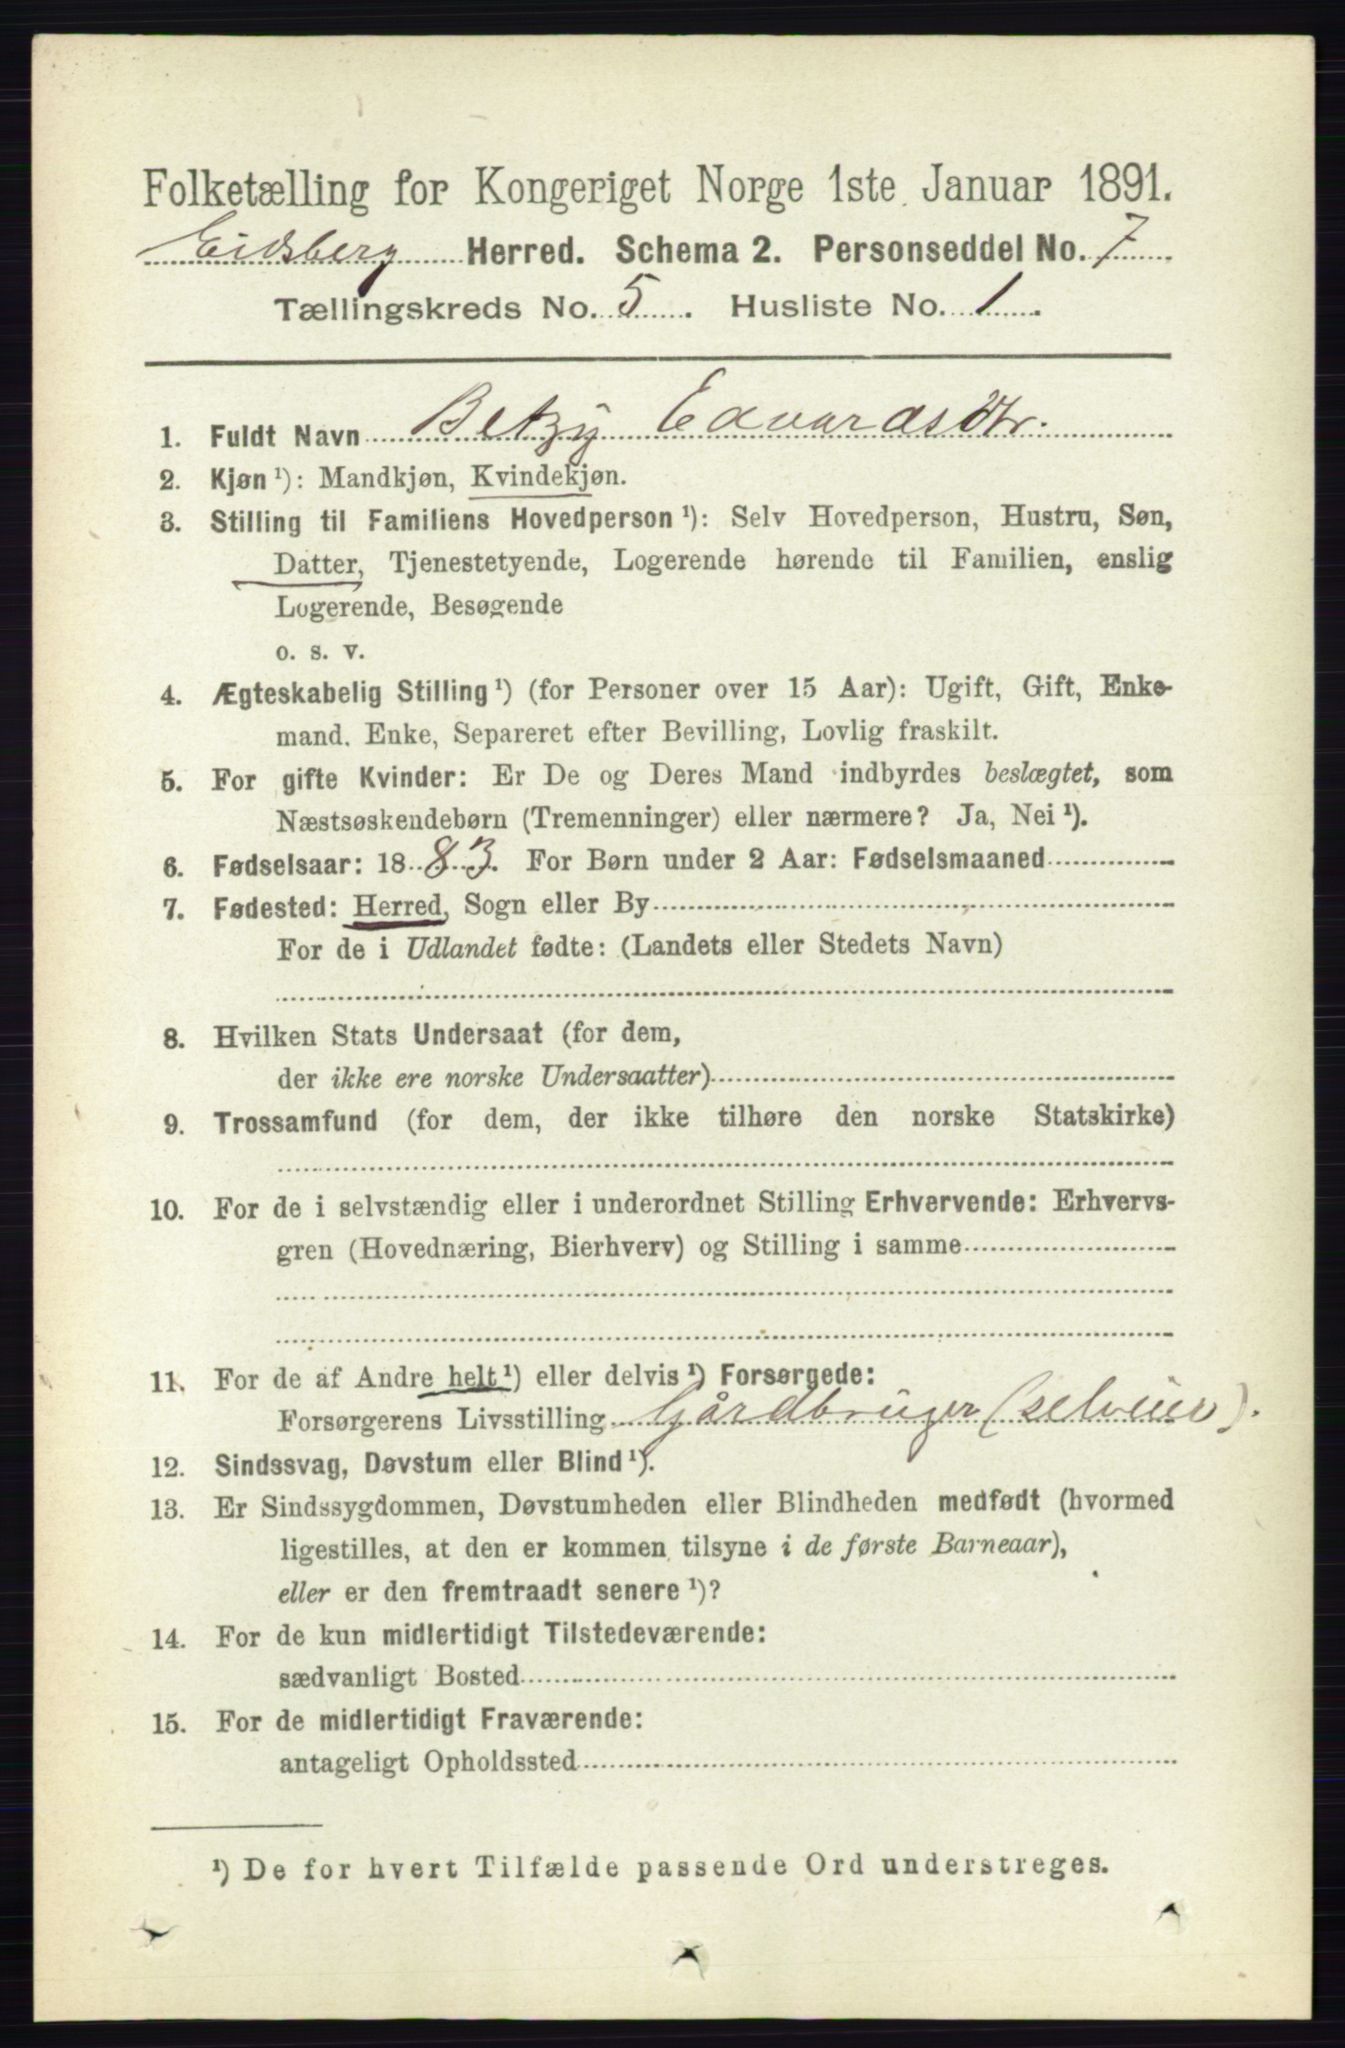 Folketælling for Kongeriget Norge 1ste Januar 1891.
Eidsberg Herred. Schema 2. Personseddel No. 7
Tællingskreds No. 5. Husliste No. 1.
1. Fuldt Navn Betzy Edvardsdtr.
2. Kjøn ¹): Mandkjøn, Kvindekjøn.
3. Stilling til Familiens Hovedperson ¹): Selv Hovedperson, Hustru, Søn,
Datter, Tjenestetyende, Logerende hørende til Familien, enslig
Logerende, Besøgende
o. s. v.
4. Ægteskabelig Stilling ¹) (for Personer over 15 Aar): Ugift, Gift, Enke-
mand. Enke, Separeret efter Bevilling, Lovlig fraskilt.
5. For gifte Kvinder: Er De og Deres Mand indbyrdes beslægtet, som
Næstsøskendebørn (Tremenninger) eller nærmere? Ja, Nei ¹).
6. Fødselsaar: 1883. For Børn under 2 Aar: Fødselsmaaned
7. Fødested: Herred, Sogn eller By
For de i Udlandet fødte: (Landets eller Stedets Navn)
8. Hvilken Stats Undersaat (for dem,
der ikke ere norske Undersaatter)
9. Trossamfund (for dem, der ikke tilhøre den norske Statskirke)
10. For de i selvstændig eller i underordnet Stilling Erhvervende: Erhvervs-
gren (Hovednæring, Bierhverv) og Stilling i samme
11. For de af Andre helt ¹) eller delvis ¹) Forsørgede:
Forsørgerens Livsstilling Gårdbruger (selveier).
12. Sindssvag, Døvstum eller Blind ¹).
13. Er Sindssygdommen, Døvstumheden eller Blindheden medfødt (hvormed
ligestilles, at den er kommen tilsyne i de første Barneaar),
eller er den fremtraadt senere ¹)?
14. For de kun midlertidigt Tilstedeværende:
sædvanligt Bosted
15. For de midlertidigt Fraværende:
antageligt Opholdssted
¹) De for hvert Tilfælde passende Ord understreges.